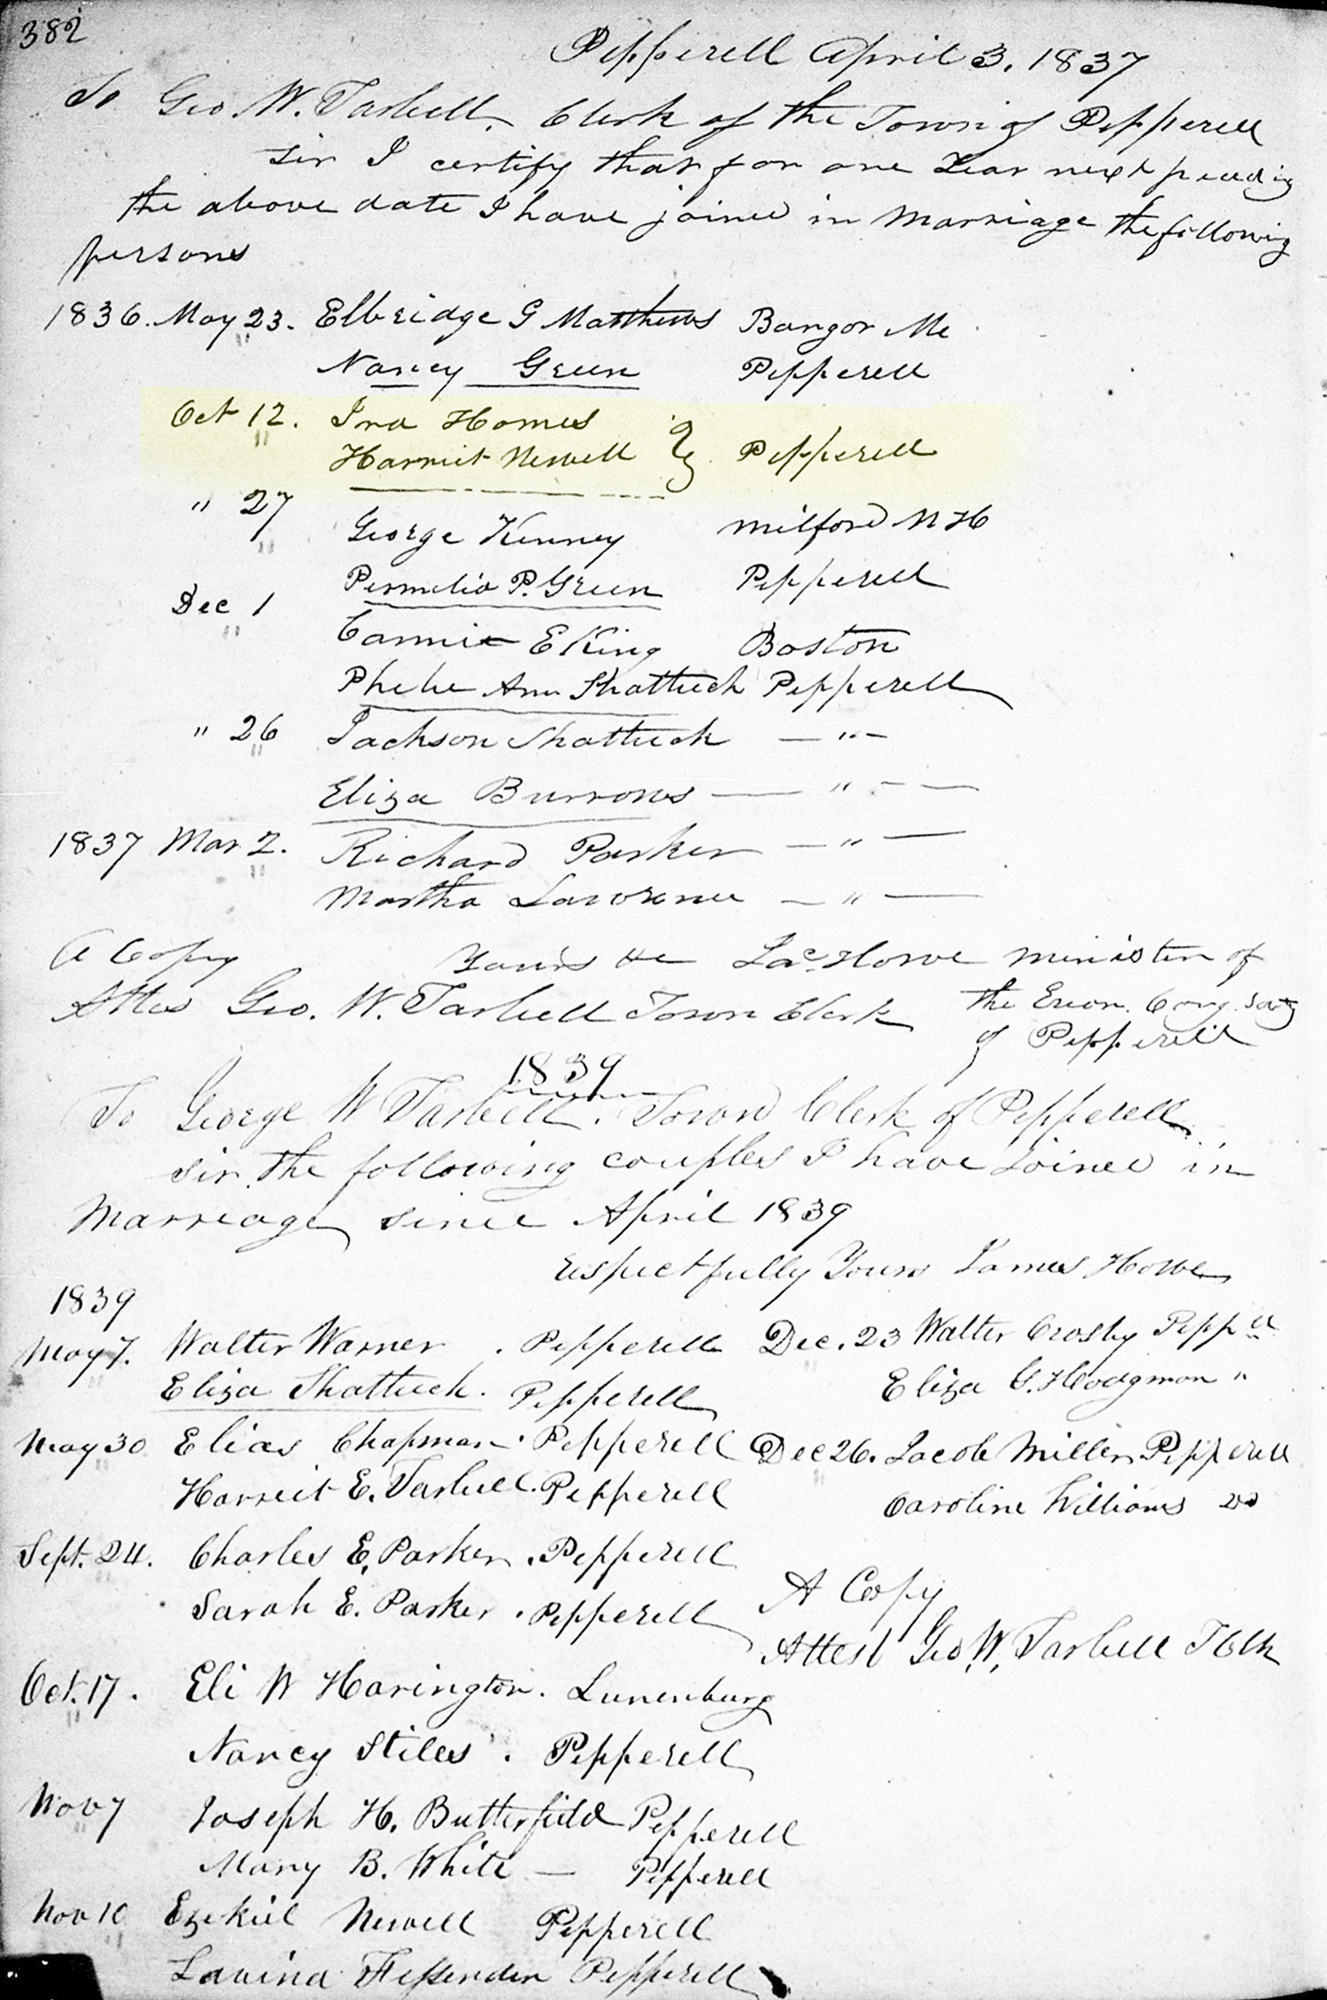 382
Pepperell April 3. 1837
To Geo. W. Tarbell, Clerk of the Town of Pepperell
Sir I certify that for one Year next
the above date I have joined in Marriage the following
persons
1836. May 23. Elbridge G Matthews Bangor Me
Nancy Green Pepperell
Oct 12. Ira Homes
Harriet Newell Pepperell
" 27 George Kenney Milford N H
Permelia P. Green Pepperell
Dec 1 E King Boston
Phebe Ann Shattuck Pepperell
" 26 Jackson Shattuck — " —
Eliza Burrows — " —
1837 Mar 2. Richard Parker — " —
Martha Lawrence — " —
A Copy Yours &c Jas. Howe Minister of
Attes Geo. W. Tarbell Town Clerk the Cong. Socty
of Pepperell
1839
To George W Tarbell. Town Clerk of Pepperell
Sir, the following couples I have joined in
Marriage since April 1839
respectfully Yours James Howe
1839
May 7. Walter Warner. Pepperell
Eliza Shattuck. Pepperell
May 30 Elias Chapman. Pepperell
Harreit E. Tarbell. Pepperell
Sept. 24. Charles E. Parker. Pepperell
Sarah E. Parker. Pepperell
Oct. 17. Eli W Harington. Lunenburg
Nancy Stiles. Pepperell
Nov 7 Joseph H. Butterfield Pepperell
Mary B. White — Pepperell
Nov 10 Ezekiel Newell Pepperell
Lavina Fessenden Pepperell
Dec. 23 Walter Crosby Pepp ll
Eliza G. Hodgman "
Dec 26. Jacob Miller Pepperell
Caroline Williams do
A Copy
Attest Geo. W. Tarbell T Clk